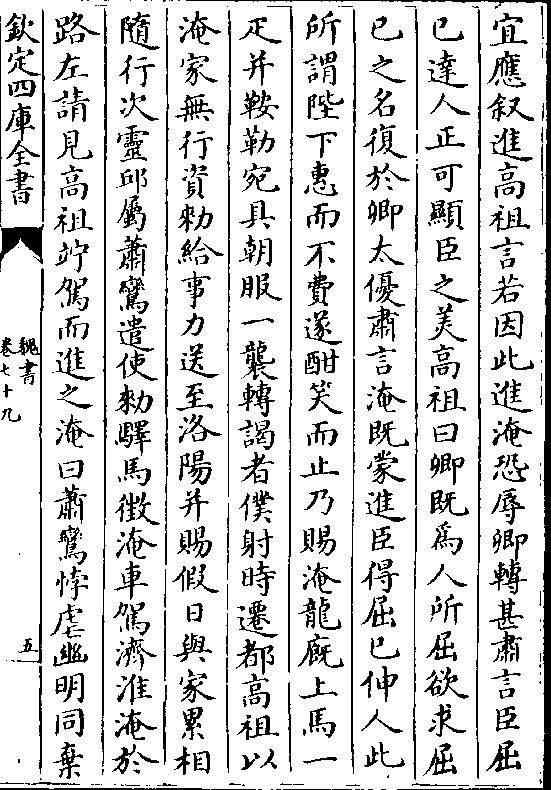 宜應叙進高祖言若因此進淹恐辱卿轉甚肅言臣屈
已達人正可顯臣之美高祖曰卿既為人所屈欲求屈
已之名復於卿太優肅言淹既蒙進臣得屈已伸人此
所謂陛下惠而不費遂酣笑而止乃賜淹龍廐上馬一
疋并鞍勒宛具朝服一襲轉謁者僕射時遷都高祖以
淹家無行資勑給事力送至洛陽并賜假日與家累相
隨行次靈邱屬蕭鸞遣使勑驛馬徴淹車駕濟淮淹於
路左請見高祖竚駕而進之淹曰蕭鸞悖虐幽明同棄
欽定四庫全書
魏書
卷七十九
五